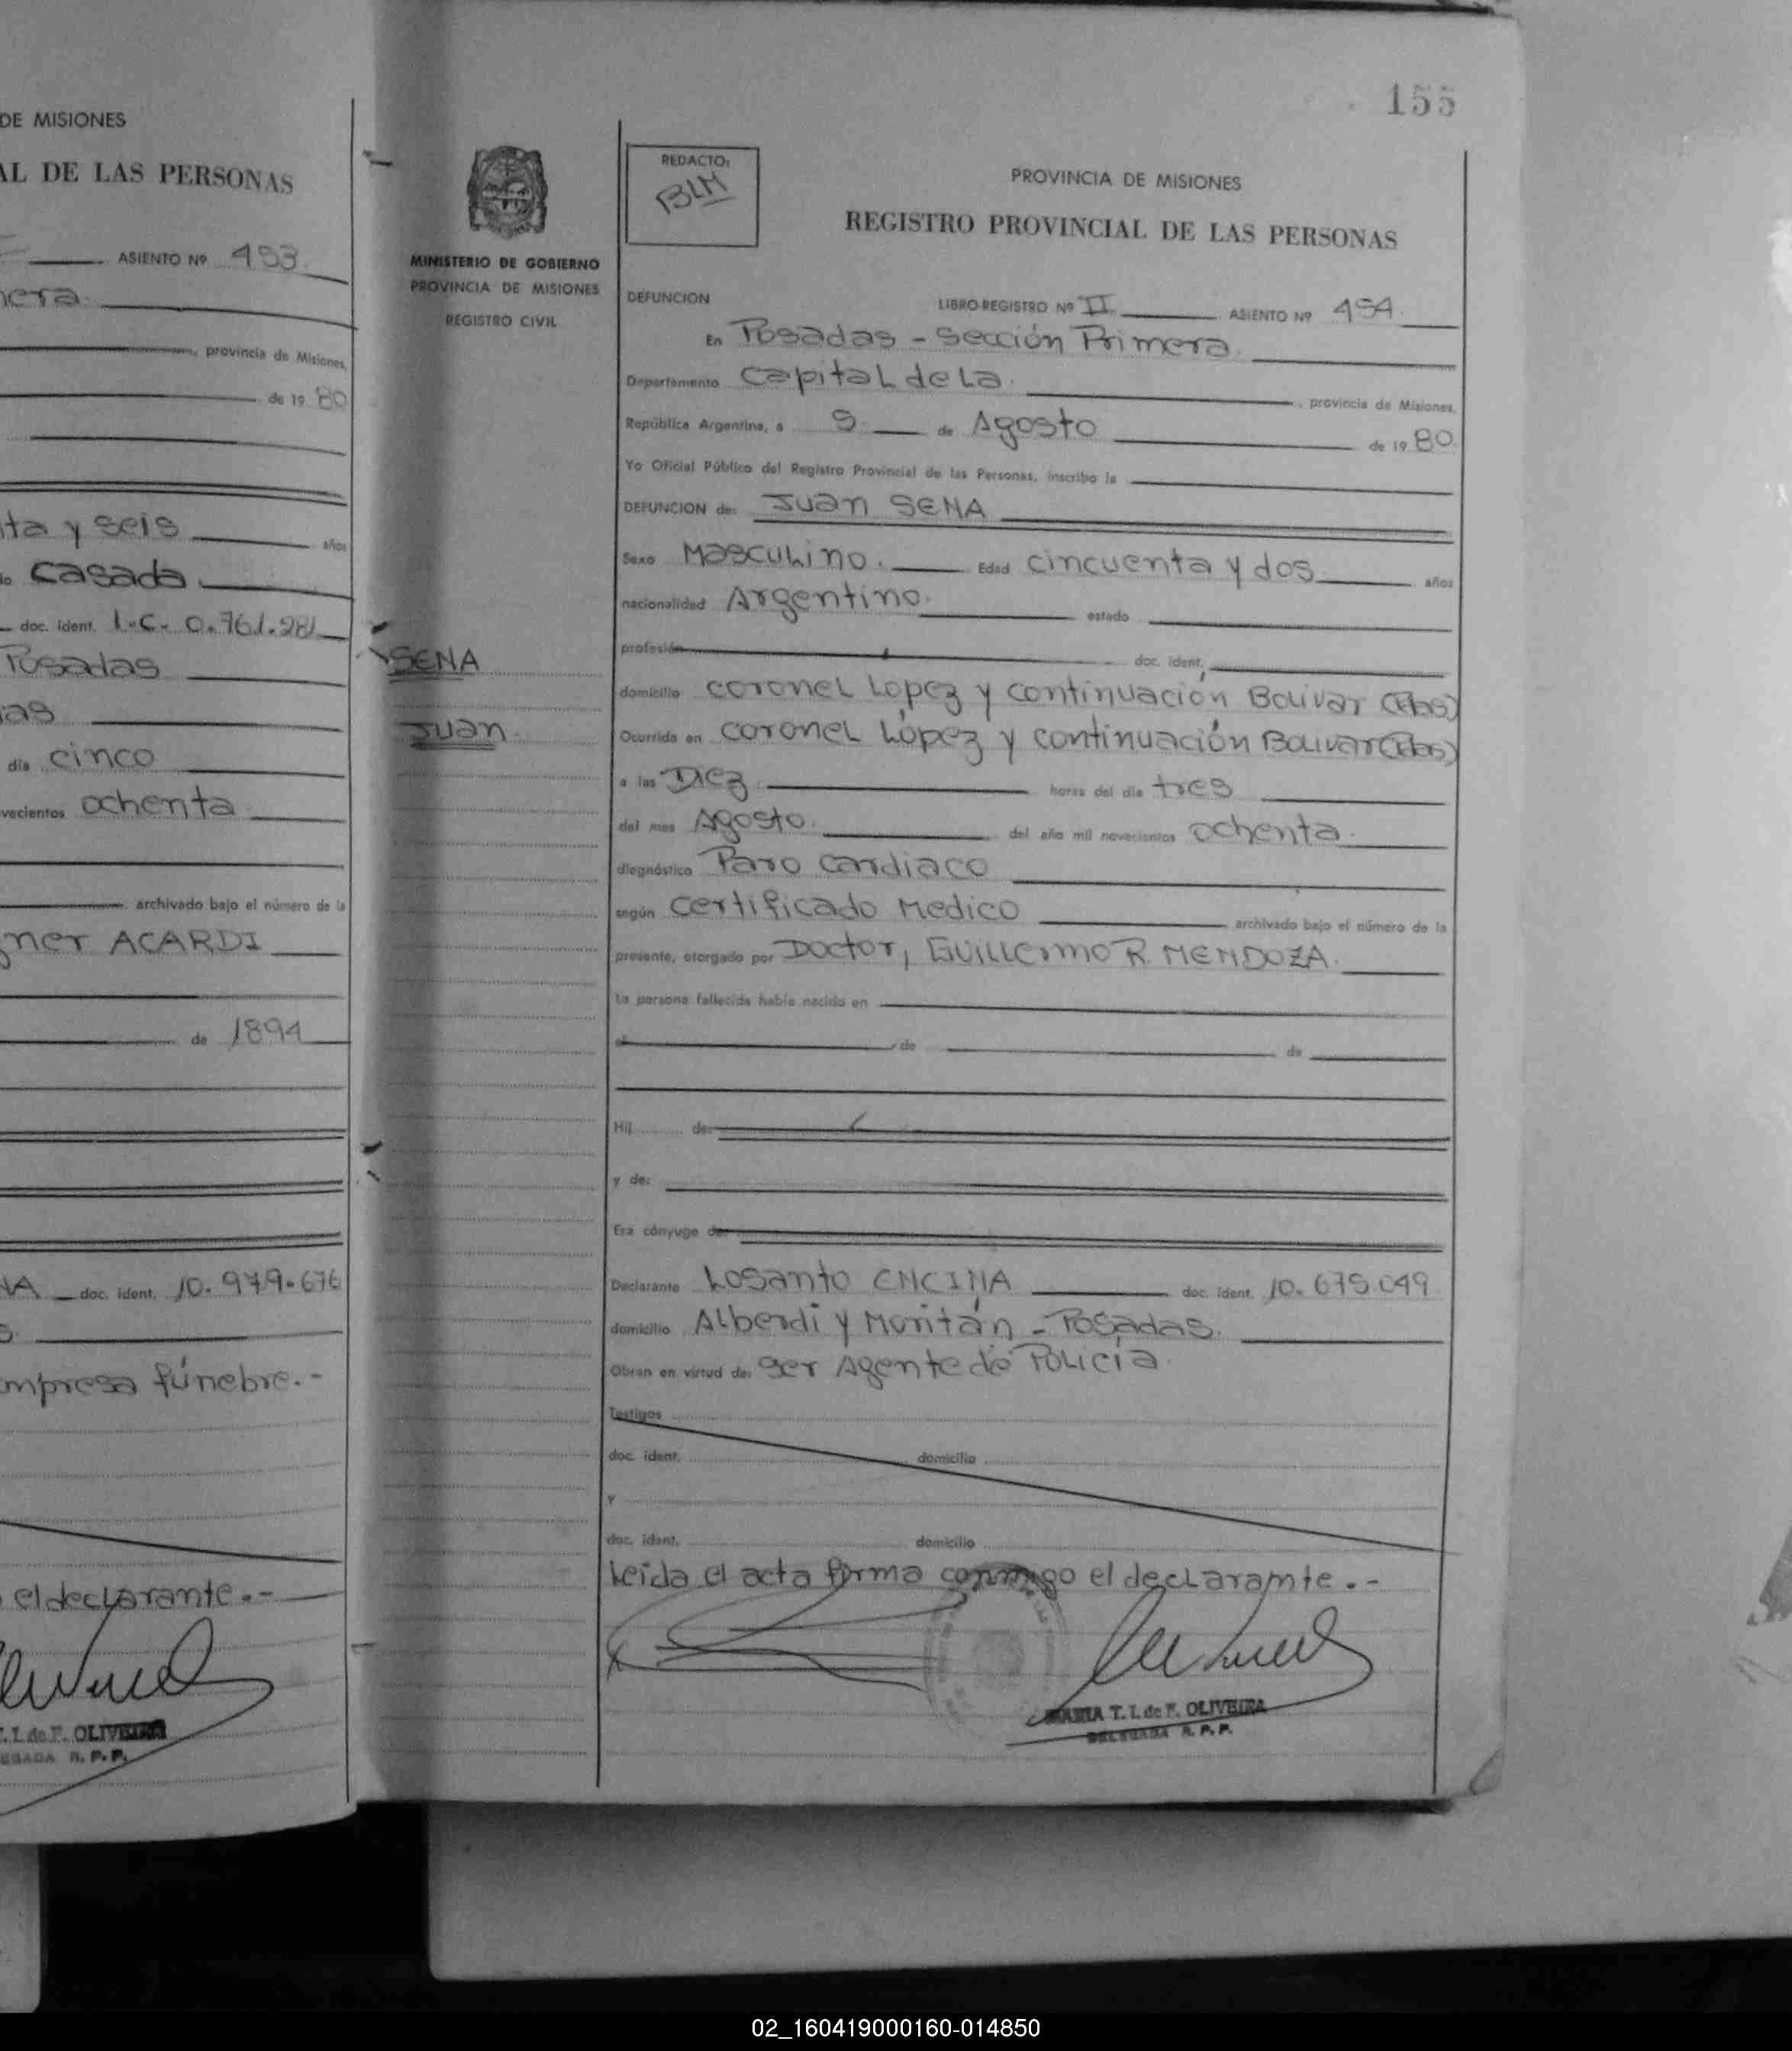 DE MISIONES
AL DE LAS PERSONAS
ASIENTO Nº 453
mera
, provincia de Misiones,
de 19 80
ta y seis años
Casada
doc. ident. L.C. 0.761.281
Posadas
as
día cinco
vecientos ochenta
archivado bajo el número de la
ner ACARDI
de 1894
NA doc. ident. 10.979.676
s.
mpresa fúnebre.-
el declarante.-
T. I. de F. OLIVEIRA
DELEGADA R. P. P.
155
MINISTERIO DE GOBIERNO
PROVINCIA DE MISIONES
REGISTRO CIVIL
SENA
Juan
REDACTO:
BLM
PROVINCIA DE MISIONES
REGISTRO PROVINCIAL DE LAS PERSONAS
DEFUNCION LIBRO-REGISTRO Nº II ASIENTO Nº 454
En Posadas - Sección Primera.
Departamento Capital de La. , provincia de Misiones,
República Argentina, a 5 de Agosto de 19 80.
Yo Oficial Público del Registro Provincial de las Personas, inscribo la
DEFUNCION de: Juan SENA
Sexo Masculino. Edad cincuenta y dos años
nacionalidad Argentino. estado
profesión doc. ident.
domicilio coronel Lopez y continuación Bolivar (Pbs)
Ocurrida en coronel López y continuación Bolivar (Pbs)
a las Diez horas del día tres
del mes Agosto. del año mil novecientos ochenta.
diagnóstico Paro cardiaco
según certificado Medico archivado bajo el número de la
presente, otorgado por Doctor, GUILLERMO R MENDOZA.
La persona fallecida había nacido en
el de de
Hij de:
y de:
Era cónyuge de:
Declarante Losanto ENCINA doc. ident. 10.675.049
domicilio Alberdi y Moritán - Posadas.
Obran en virtud de: ser Agente de Policía.
Testigos
doc. ident. domicilio
y
doc. ident. domicilio
Leída el acta firma conmigo el declarante.-
MARIA T. I. de F. OLIVEIRA
DELEGADA R. P. P.
02_160419000160-014850